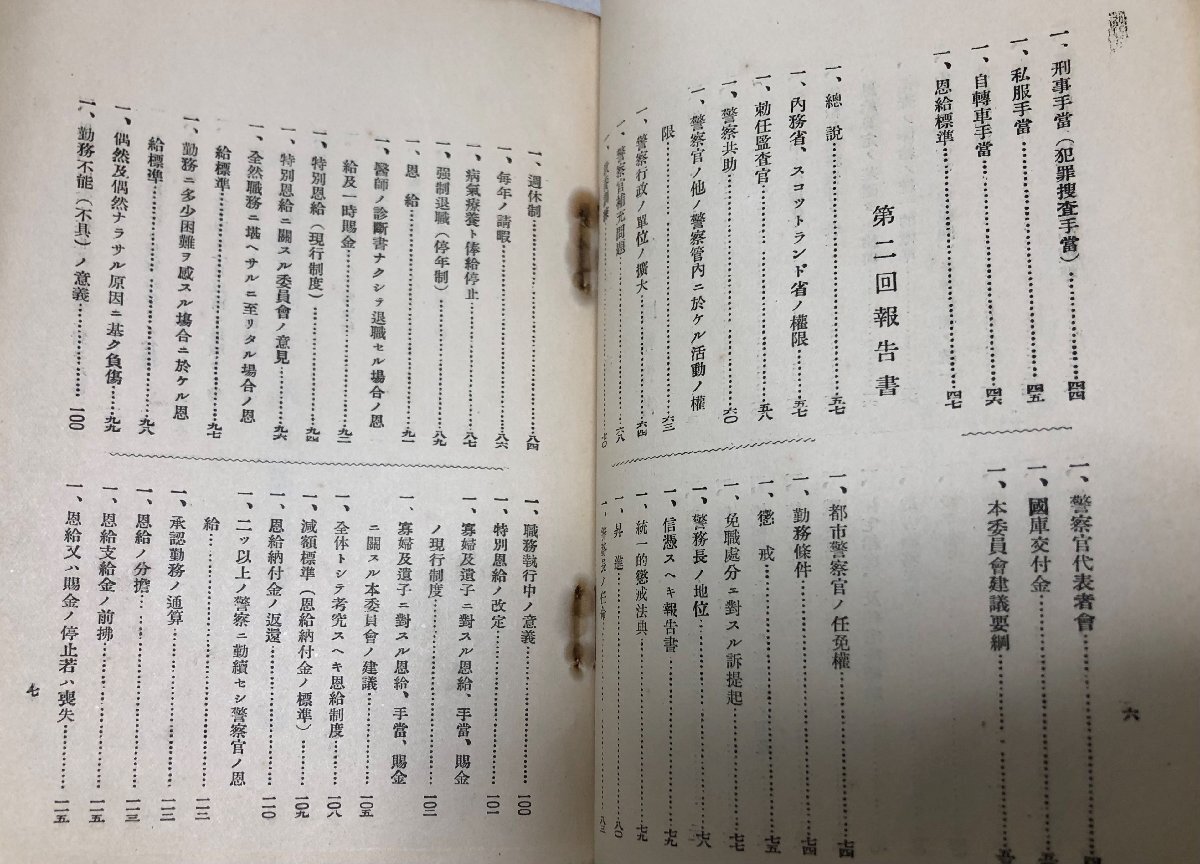 一、刑事手當（犯罪搜査手當）……四四
一、私服手當……四五
一、自轉車手當……四六
一、恩給標準……四七
一、警察官代表者會……
一、國庫交付金……
一、本委員會建議要綱……
第二回報告書
一、總説……五七
一、內務省、スコットランド省ノ權限……五七
一、勅任監査官……五八
一、警察共助……六〇
一、警察官ノ他ノ警察管內ニ於ケル活動ノ權
限……六三
一、警察行政ノ單位ノ擴大……六四
一、警察官補充問題……六八
一、……七〇
一、都市警察官ノ任免權……七四
一、勤務條件……七四
一、懲戒……七五
一、免職處分ニ對スル訴提起……七七
一、警務長ノ地位……七八
一、信憑スヘキ報告書……七九
一、統一的懲戒法典……七九
一、昇進……八〇
六
一、週休制……八四
一、每年ノ請暇……八六
一、病氣療養ト俸給停止……八七
一、强制退職（停年制）……八九
一、恩給……九一
一、醫師ノ診斷書ナクシテ退職セル場合ノ恩
給及一時賜金……九二
一、特別恩給（現行制度）……九四
一、特別恩給ニ關スル委員會ノ意見……九六
一、全然職務ニ堪ヘサルニ至リタル場合ノ恩
給標準……九七
一、勤務ニ多少困難ヲ感スル場合ニ於ケル恩
給標準……九八
一、偶然及偶然ナラサル原因ニ基ク負傷……九九
一、勤務不能（不具）ノ意義……一〇〇
一、職務執行中ノ意義……一〇〇
一、特別恩給ノ改定……一〇一
一、寡婦及遺子ニ對スル恩給、手當、賜金
ノ現行制度……一〇二
一、寡婦及遺子ニ對スル恩給、手當、賜金
ニ關スル本委員會ノ建議……一〇五
一、全体トシテ考究スヘキ恩給制度……一〇八
一、減額標準（恩給納付金ノ標準）……一〇九
一、恩給納付金ノ返還……一一〇
一、二ッ以上ノ警察ニ勤續セシ警察官ノ恩
給……一一二
一、承認勤務ノ通算……一一二
一、恩給ノ分擔……一一三
一、恩給支給金ノ前拂……一一五
一、恩給又ハ賜金ノ停止若ハ喪失……一一五
七